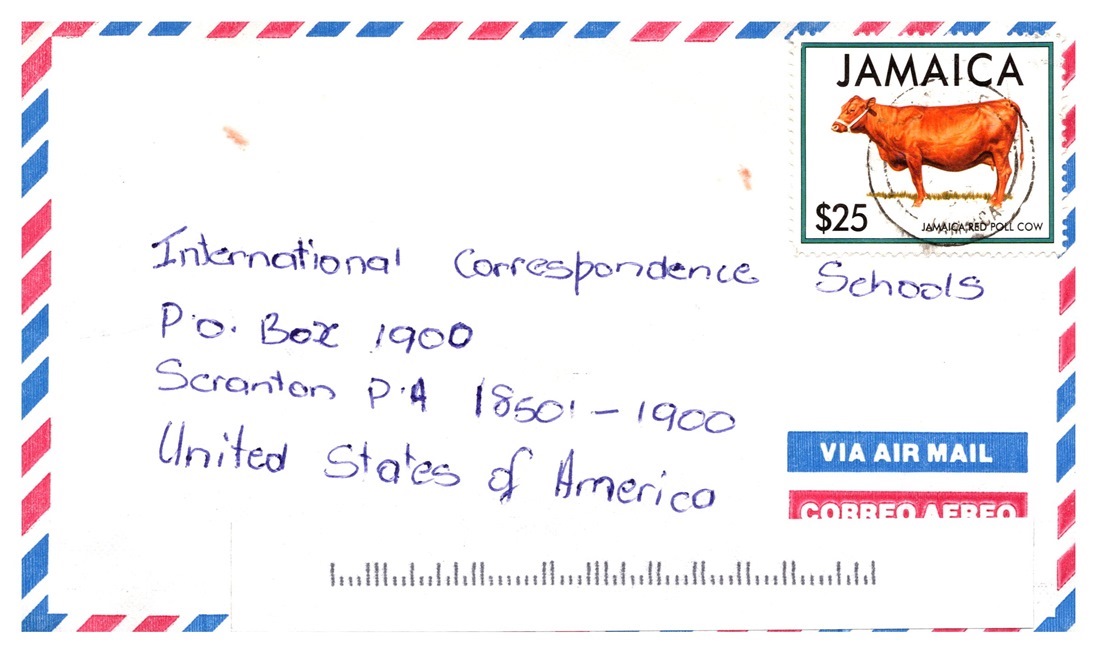 JAMAICA
$25
JAMAICA RED POLL COW
JAMAICA
International Correspondence Schools
P.O. Box 1900
Scranton P.A 18501-1900
United States of America
VIA AIR MAIL
CORREO AEREO